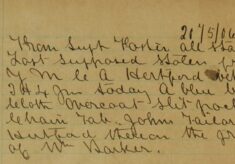 21/5/06
From Supt Foster all sta
Last Supposed Stolen
Y M C A Hertford bet
3 & 4 pm today A blue
cloth Overcoat slit poc
chain Tab. John Tailor
Hertford thereon the
of Wm Barker.